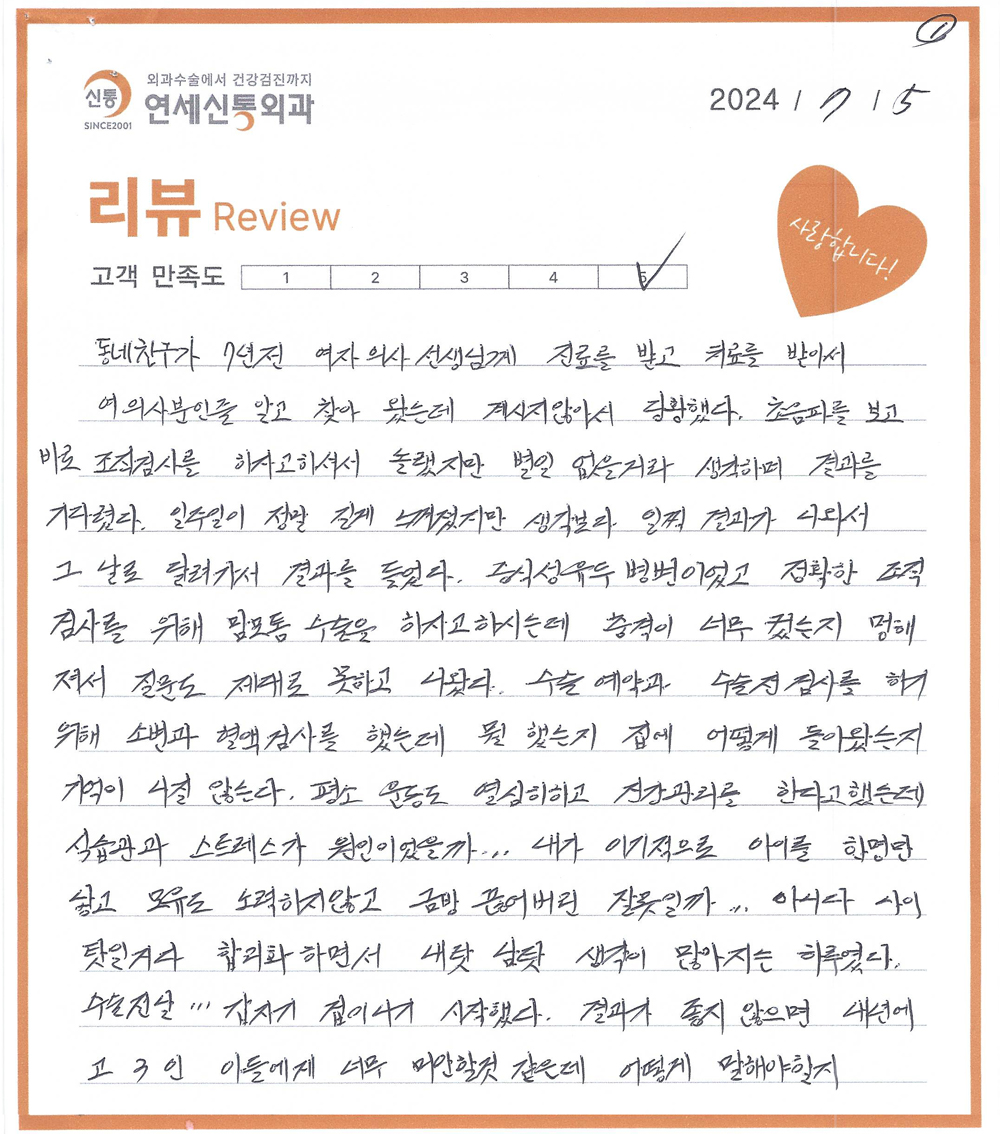 ①
외과수술에서 건강검진까지
신통 연세신통외과
SINCE2001
2024 / 7 / 5
리뷰 Review
사랑합니다!
고객 만족도 1 2 3 4 5
동네친구가 7년전 여자의사 선생님께 진료를 받고 치료를 받아서
여의사분인줄 알고 찾아 왔는데 계시지않아서 당황했다. 초음파를 보고
바로 조직검사를 하자고하셔서 놀랬지만 별일 없을거라 생각하며 결과를
기다렸다. 일주일이 정말 길게 느껴졌지만 생각보다 일찍 결과가 나와서
그 날로 달려가서 결과를 들었다. 증식성유두 병변이었고 정확한 조직
검사를 위해 맘모톰 수술을 하자고하시는데 충격이 너무 컸는지 멍해
져서 질문도 제대로 못하고 나왔다. 수술 예약과 수술전 검사를 하기
위해 소변과 혈액검사를 했는데 뭘 했는지 집에 어떻게 돌아왔는지
기억이 나질 않는다. 평소 운동도 열심히하고 건강관리를 한다고했는데
식습관과 스트레스가 원인이었을까... 내가 이기적으로 아이를 한명만
낳고 모유도 노력하지않고 금방 끊어버린 잘못일까... 아시다 사이
탓일거다 합리화하면서 내탓 남탓 생각이 많아지는 하루였다.
수술전날... 갑자기 겁이나기 시작했다. 결과가 좋지 않으면 내년에
고3인 아들에게 너무 미안할것 같은데 어떻게 말해야할지